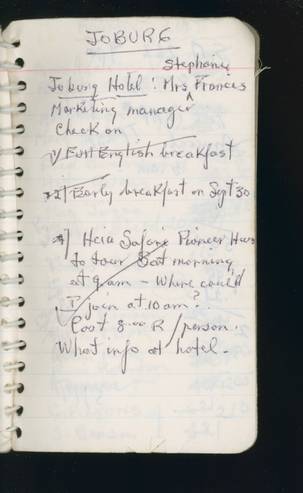 JOBURG
Stephanie
Joburg Hotel : Mrs Francis
Marketing manager
Check on
1) Full English breakfast
2) Early breakfast on Sept 30
Safari Pioneer
to tour Sat morning
at 9 am - Where could
I join at 10 am?
Cost 8.00 R/person.
What info at hotel.